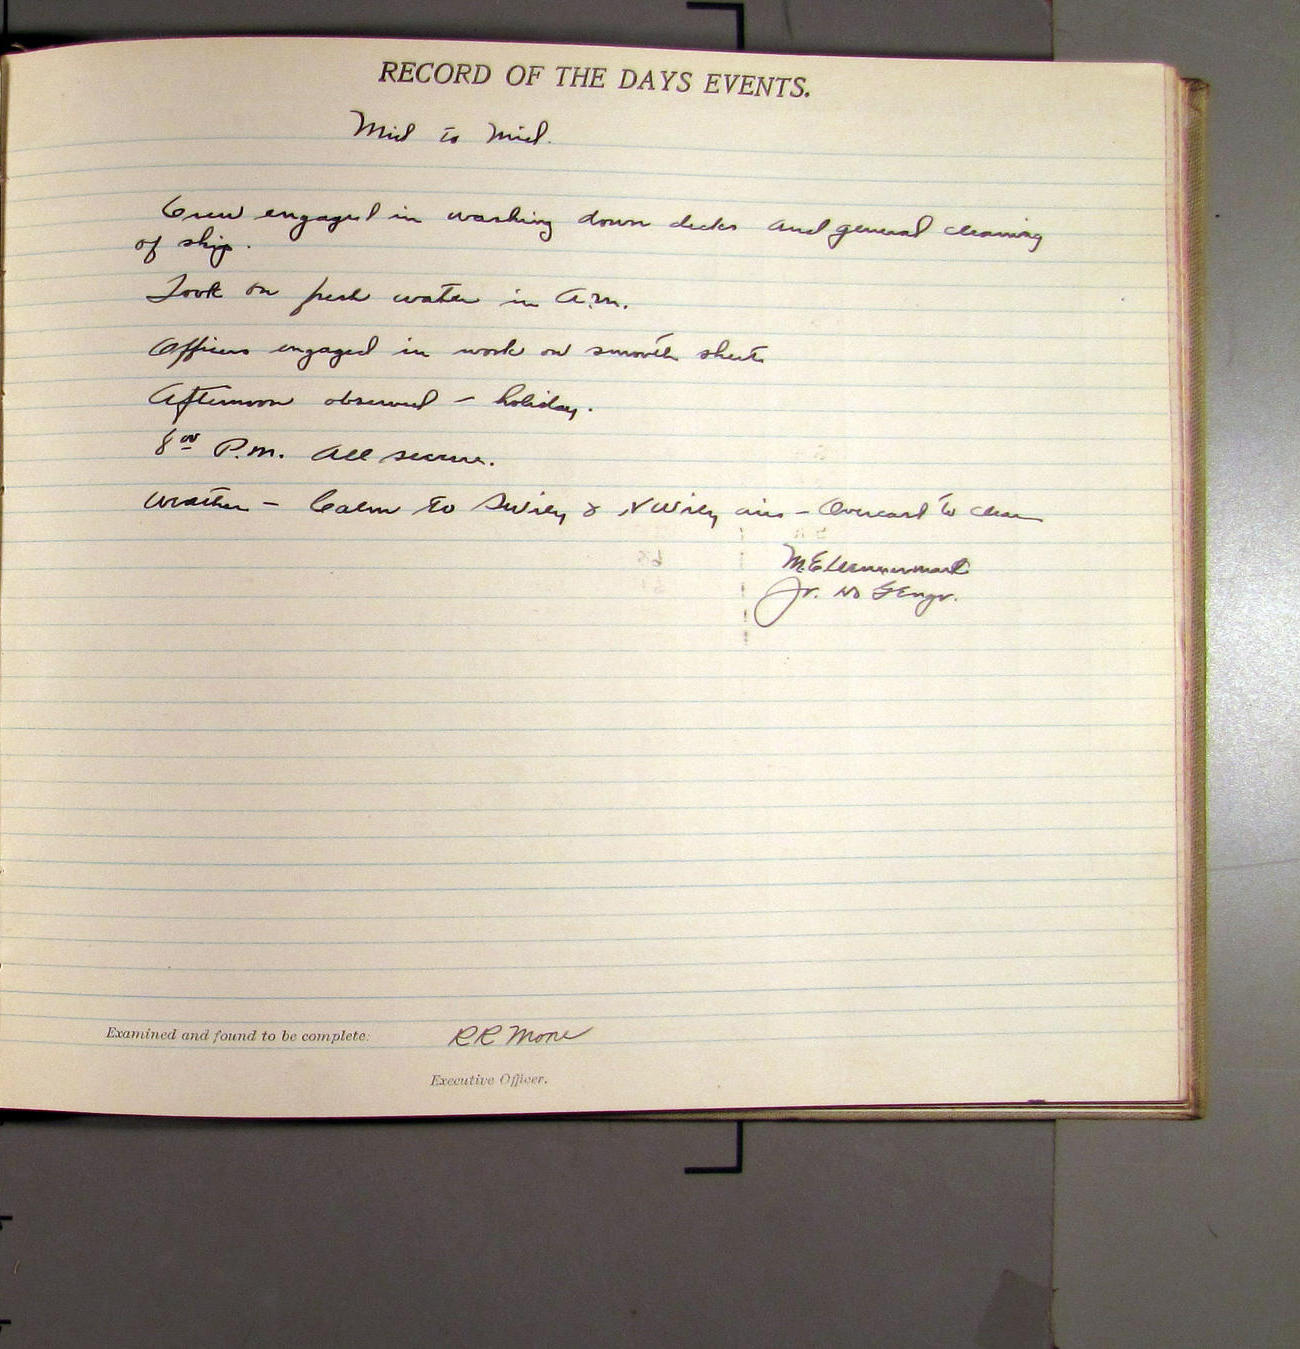 RECORD OF THE DAYS EVENTS.
Mid to Mid.
Crew engaged in washing down decks and general cleaning
of ship.
Took on fresh water in A.M.
Officers engaged in work on smooth sheets
Afternoon observed — holiday.
8⁰⁰ P.M. All secure.
Weather — Calm to SWily & NWily airs — Overcast to clear
Jr. H & G Engr.
Examined and found to be complete:
RR Moore
Executive Officer.